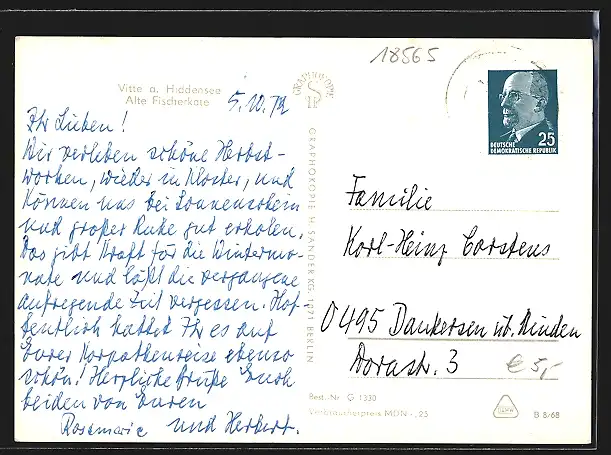 18565
Vitte a. Hiddensee
Alte Fischerkate
5.10.72
Ihr Lieben!
Wir verleben schöne Herbst-
wochen, wieder in Kloster, und
können uns bei Sonnenschein
und großer Ruhe gut erholen.
Das gibt Kraft für die Wintermo-
nate und läßt die vergangene
aufregende Zeit vergessen. Hof-
fentlich hattet Ihr es auf
Eurer Karpathenreise ebenso
schön! Herzliche Grüße Euch
beiden von Euren
Rosemarie und Herbert.
GRAPHOKOPIE H. SANDER KG, 1071 BERLIN
25
DEUTSCHE
DEMOKRATISCHE REPUBLIK
Familie
Karl-Heinz Carstens
0495 Dankersen üb. Minden
Dorastr. 3
€ 5,-
Best.-Nr. G 1330
Verbraucherpreis MDN -,23
B 8/68